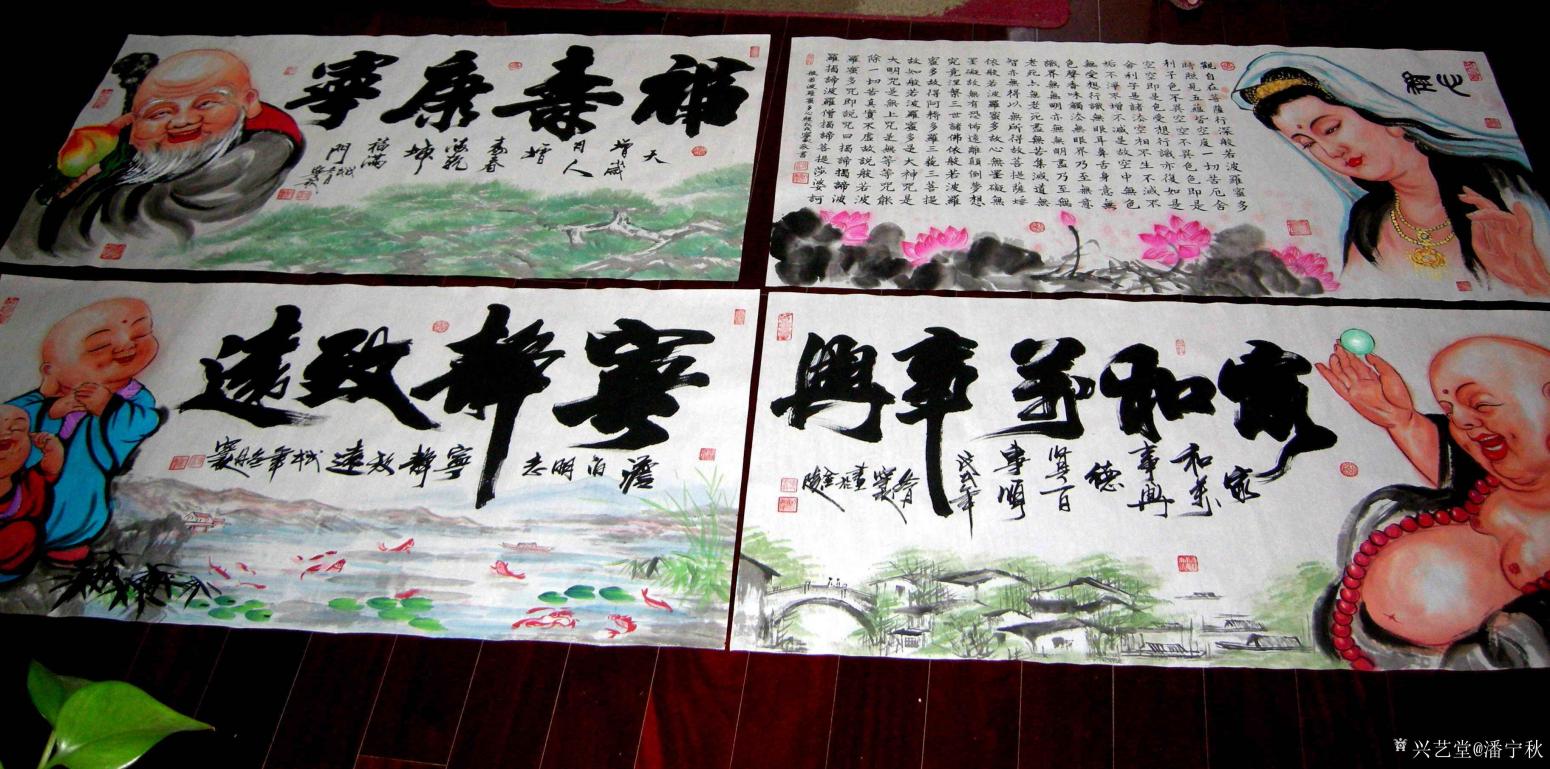 福壽康寧
天
增歲
月人
增
壽春
滿乾
坤
福滿
門
心經
觀自在菩薩行深般若波羅蜜多
時照見五蘊皆空度一切苦厄舍
利子色不異空空不異色色即是
空空即是色受想行識亦復如是
舍利子是諸法空相不生不滅不
垢不淨不增不減是故空中無色
無受想行識無眼耳鼻舌身意無
色聲香味觸法無眼界乃至無意
識界無無明亦無無明盡乃至無
老死亦無老死盡無苦集滅道無
智亦無得以無所得故菩提薩埵
依般若波羅蜜多故心無罣礙無
罣礙故無有恐怖遠離顛倒夢想
究竟涅槃三世諸佛依般若波羅
蜜多故得阿耨多羅三藐三菩提
故知般若波羅蜜多是大神咒是
大明咒是無上咒是無等等咒能
除一切苦真實不虛故說般若波
羅蜜多咒即說咒曰揭諦揭諦波
羅揭諦波羅僧揭諦菩提莎婆訶
寧靜致遠
澹泊明志
寧靜致遠
家和萬事興
家
和萬
事興
德
百
事順
兴艺堂@潘宁秋